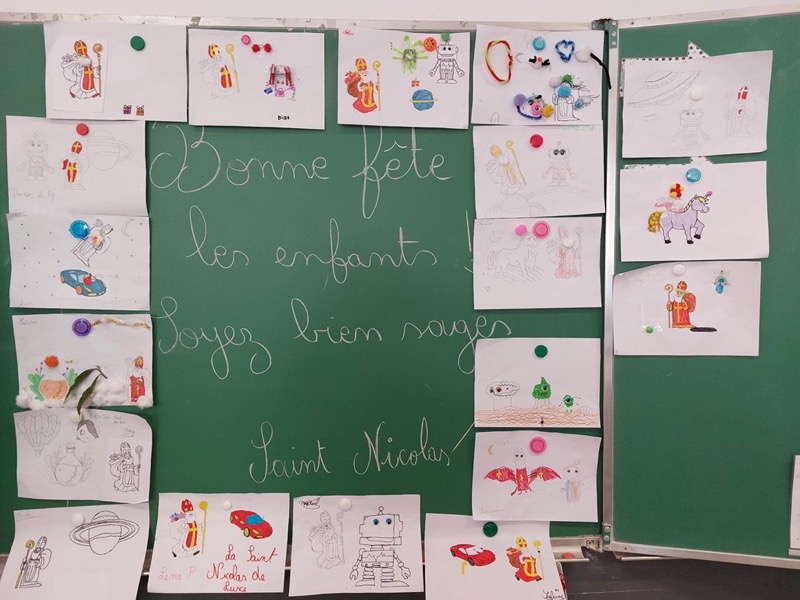 Dias
Bonne fête
les enfants !
Soyez bien sages
Saint Nicolas
Lena P
La Saint
Nicolas de
Luxe